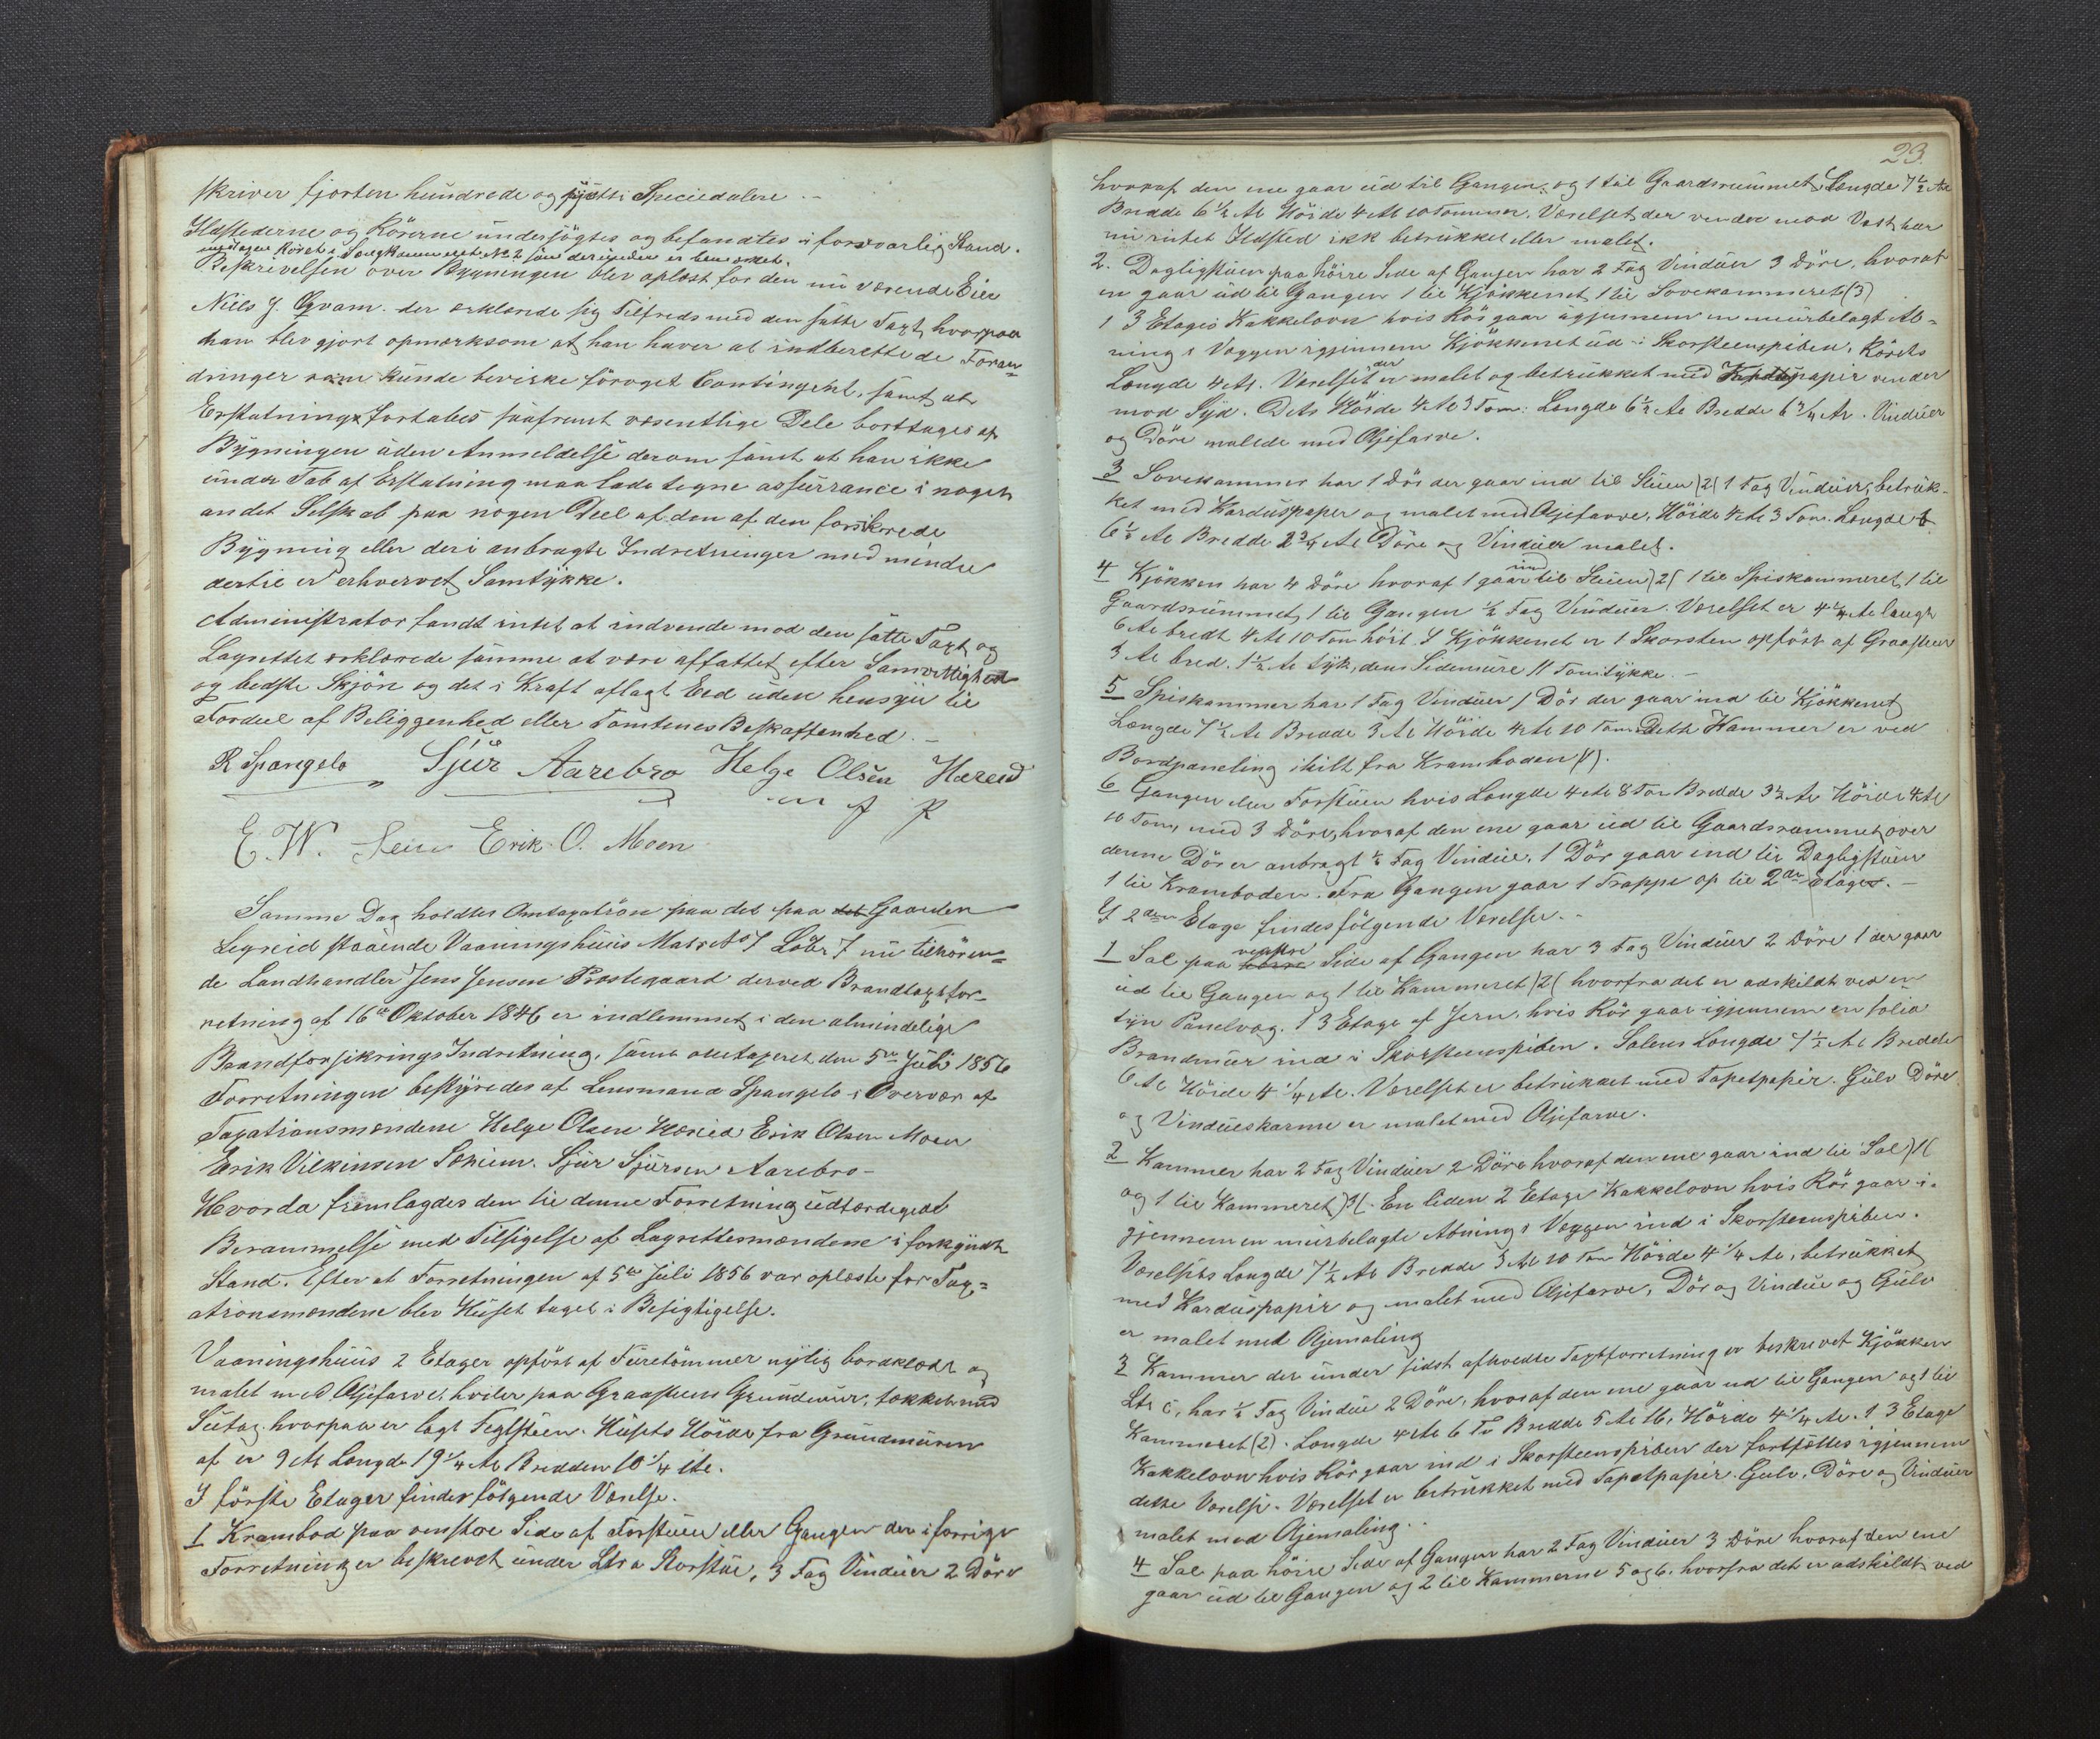 skriver fjorten hundrede og Speciedalere. -
Ildstederne og Rörerne undersögtes og befandtes i forsvarlig Stand.
undtagen Röret i Sengkammeret No 2 som derinden er bemærket.
Beskrivelsen over Bygningen blev oplæst for den nu værende Eier
Niels J. Gvam. der erklærede sig Tilfreds med den satte Taxt, hvorpaa
han blev gjort opmærksom at han haver at indberette de Foran-
dringer som kunde bevirke föröget Contingent, samt at
Erstatning fortabes saafremt væsentlige Dele borttages af
Bygningen uden Anmeldelse derom samt at han ikke
under Tab af Erstatning maa lade tegne assurrance i noget
andet Selskab paa nogen Deel af den af den forsikrede
Bygning eller deri anbragte Indretninger med mindre
dertil er erhvervet Samtykke.
Administrator fandt intet at indvende mod den satte Taxt og
Lagrettet erklærede samme at være affattet efter Samvittighed
og bedste Skjön og det i Kraft aflagt Eed uden hensyn til
Fordeel af Beliggenhed eller Tomtenes Beskaffenhed. -
R Spangelo Sjur Aarebro Helge Olsen Hæreid
m f P
E. W. Seim Erik O. Moen
Samme Dag holdtes Omtaxation paa det paa Gaarden
Legreid staaende Vaaningshuus Matr No 7 Löbr 7 nu tilhören-
de Landhandler Jens Jensen Prestegaard derved Brandtaxtfor-
retning af 16de Oktober 1846 er indlemmet i den almindelige
Brandforsikrings Indretning, samt omtaxeret den 5te Juli 1856
Forretningen bestyredes af Lensmand Spangelo i Overvær af
Taxationsmændene Helge Olsen Hæreid Erik Olsen Moen
Erik Vilkinsen Seim. Sjur Sjursen Aarebro -
Hvorda fremlagdes den til denne Forretning udfærdigede
Berammelse med Tilsigelse af Lagrettesmændene i forkyndt
Stand. Efter at Forretningen af 5te Juli 1856 var oplæst for Tax-
ationsmændene blev Huset taget i Besigtigelse.
Vaaningshuus 2 Etager opfört af Furetömmer nylig bordklædt og
malet med Oljefarve, hviler paa Graasteens Grundmur, tækket med
Sutag hvorpaa er lagt Teglsteen. Husets Höide fra Grundmuren
af er 9 Al Længde 19 1/4 Al Bredden 10 1/4 Al.
I förste Etager findes fölgende Værelse.
1 Krambod paa venstre Side af Forstuen eller Gangen der i forrige
Forretning er beskrevet under Ltr a Storstue, 3 Fag Vinduer 2 Döre
23.
hvoraf den ene gaar ud til Gangen, og 1 til Gaardsrummet Længde 7 1/2 Al
Bredde 6 1/2 Al Höide 4 Al 10 Tommer. Værelset, der vender mod Vest har
nu intet Ildsted ikk betrukket eller malet.
2. Dagligstuen paa höire Side af Gangen har 2 Fag Vinduer 3 Döre, hvoraf
en gaar ud til Gangen 1 til Kjökkenet, 1 til Sovekammeret (3)
1 3 Etages Kakkelovn hvis Rör gaar igjennem en muurbelagt Ab-
ning i Væggen igjennem Kjökkenet ud i Skorsteenspiben, Rörets
Længde 4 Al. Værelset der er malet og betrukket med papir vender
mod Syd. Dets Höide 4 Al 3 Tom: Længde 6 1/2 Al Bredde 6 3/4 Al. Vinduer
og Döre malede med Oljefarve.
3 Sovekammer har 1 Dör der gaar ind til Stuen )2( 1 Fag Vinduer, betruk-
ket med Karduspaper og malet med Oljefarve, Höide 4 Al 3 Tom. Længde
6 1/2 Al Bredde 2 3/4 Al Döre og Vinduer malet.
4 Kjökken har 4 Döre hvoraf 1 gaar ind til Stuen )2( 1 til Spiskammeret, 1 til
Gaardsrummet, 1 til Gangen 1/2 Fag Vinduer. Værelset er 4 1/4 Al langt
6 Al bredt 4 Al 10 Tom höit. I Kjökkenet er 1 Skorsten opfört af Graasteen
3 Al bred. 1 1/2 Al tyk, dens Sidemure 11 Tom tykke. -
5 Spiskammer har 1 Fag Vinduer 1 Dör der gaar ind til Kjökkenet
Længde 7 1/2 Al Bredde 3 Al Höide 4 Al 10 Tom. Dette Kammer er ved
Bordpaneling skilt fra Kramboden (1).
6 Gangen eller Forstuen hvis Længde 4 Al 8 Tom Bredde 3 1/2 Al Höide 4 Al
10 Tom, med 3 Döre, hvoraf den ene gaar ud til Gaardsrummet, over
denne Dör er anbragt 1/2 Fag Vindue, 1 Dör gaar ind til Dagligstuen
1 til Kramboden. Fra Gangen gaar 1 Trappe op til 2den Etage. -
I 2den Etage findes fölgende Værelser. -
1 Sal paa venstre Side af Gangen har 3 Fag Vinduer 2 Döre 1 der gaar
ud til Gangen og 1 til Kammeret )2( hvorfra det er adskildt ved en
tyn Panelvæg. 1 3 Etage af Jern, hvis Rör gaar igjennem en solid
Brandmuur ind i Skorsteenspiben. Salens Længde 7 1/2 Al Bredde
6 Al Höide 4 1/4 Al. Værelset er betrukket med Tapetpapir. Gulv Döre
og Vindueskarme er malet med Oljefarve.
2 Kammer har 2 Fag Vinduer 2 Döre hvoraf den ene gaar ind til Sal )1(
og 1 til Kammeret )3(. En liden 2 Etage Kakkelovn hvis Rör gaar i-
gjennem en muurbelagte Abning i Væggen ind i Skorsteenspiben.
Værelsets Længde 7 1/2 Al Bredde 3 Al 10 Tom Höide 4 1/4 Al, betrukket
med Karduspapir og malet med Oljefarve, Dör og Vindue og Gulv
er malet med Oljemaling
3 Kammer der under sidst afholdte Taxtforretning er beskrevet Kjökken
Ltr c, har 1/2 Fag Vindue 2 Döre, hvoraf den ene gaar ud til Gangen og 1 til
Kammeret (2). Længde 4 Al 6 To Bredde 5 Al 16, Höide 4 1/4 Al. 1 3 Etage
Kakkelovn hvis Rör gaar ind i Skorsteenspiben der fortsættes igjennem
dette Værelse. Værelset er betrukket med Tapetpapir. Gulv, Döre og Vinduer
malet med Oljemaling..
4 Sal paa höire Side af Gangen har 2 Fag Vinduer 3 Döre hvoraf den ene
gaar ud til Gangen og 2 til Kammerne 5 og 6. hvorfra det er adskildt ved